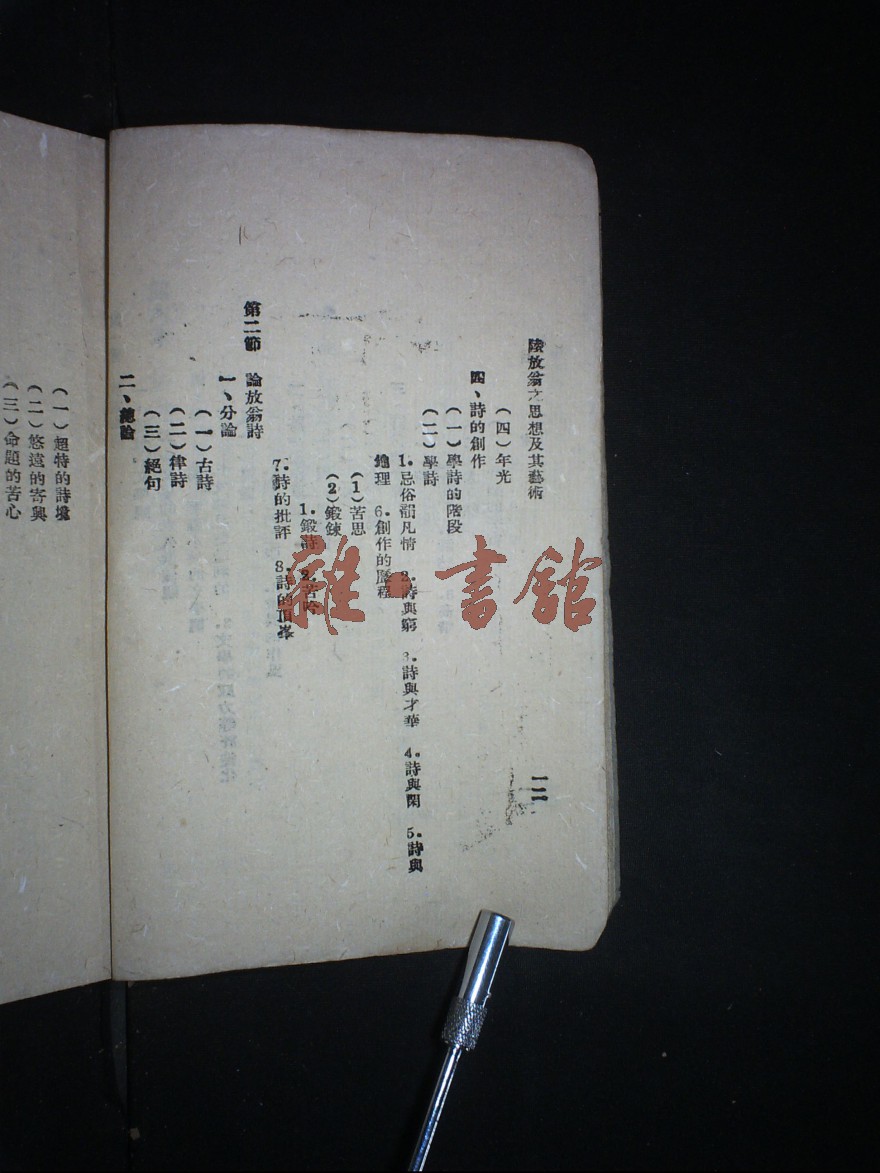 陸放翁之思想及其藝術
一二
（四）年光
四、詩的創作
（一）學詩的階段
（二）學詩
1. 忌俗韻凡情 2. 詩與窮 3. 詩與才華 4. 詩與閑 5. 詩與
地理 6. 創作的歷程
（1）苦思
（2）鍛鍊
1. 鍛詩 2. 苦吟
7. 詩的批評 8. 詩的頂峯
第二節 論放翁詩
一、分論
（一）古詩
（二）律詩
（三）絕句
二、總論
（一）超特的詩境
（二）悠遠的寄興
（三）命題的苦心
雜·書舘